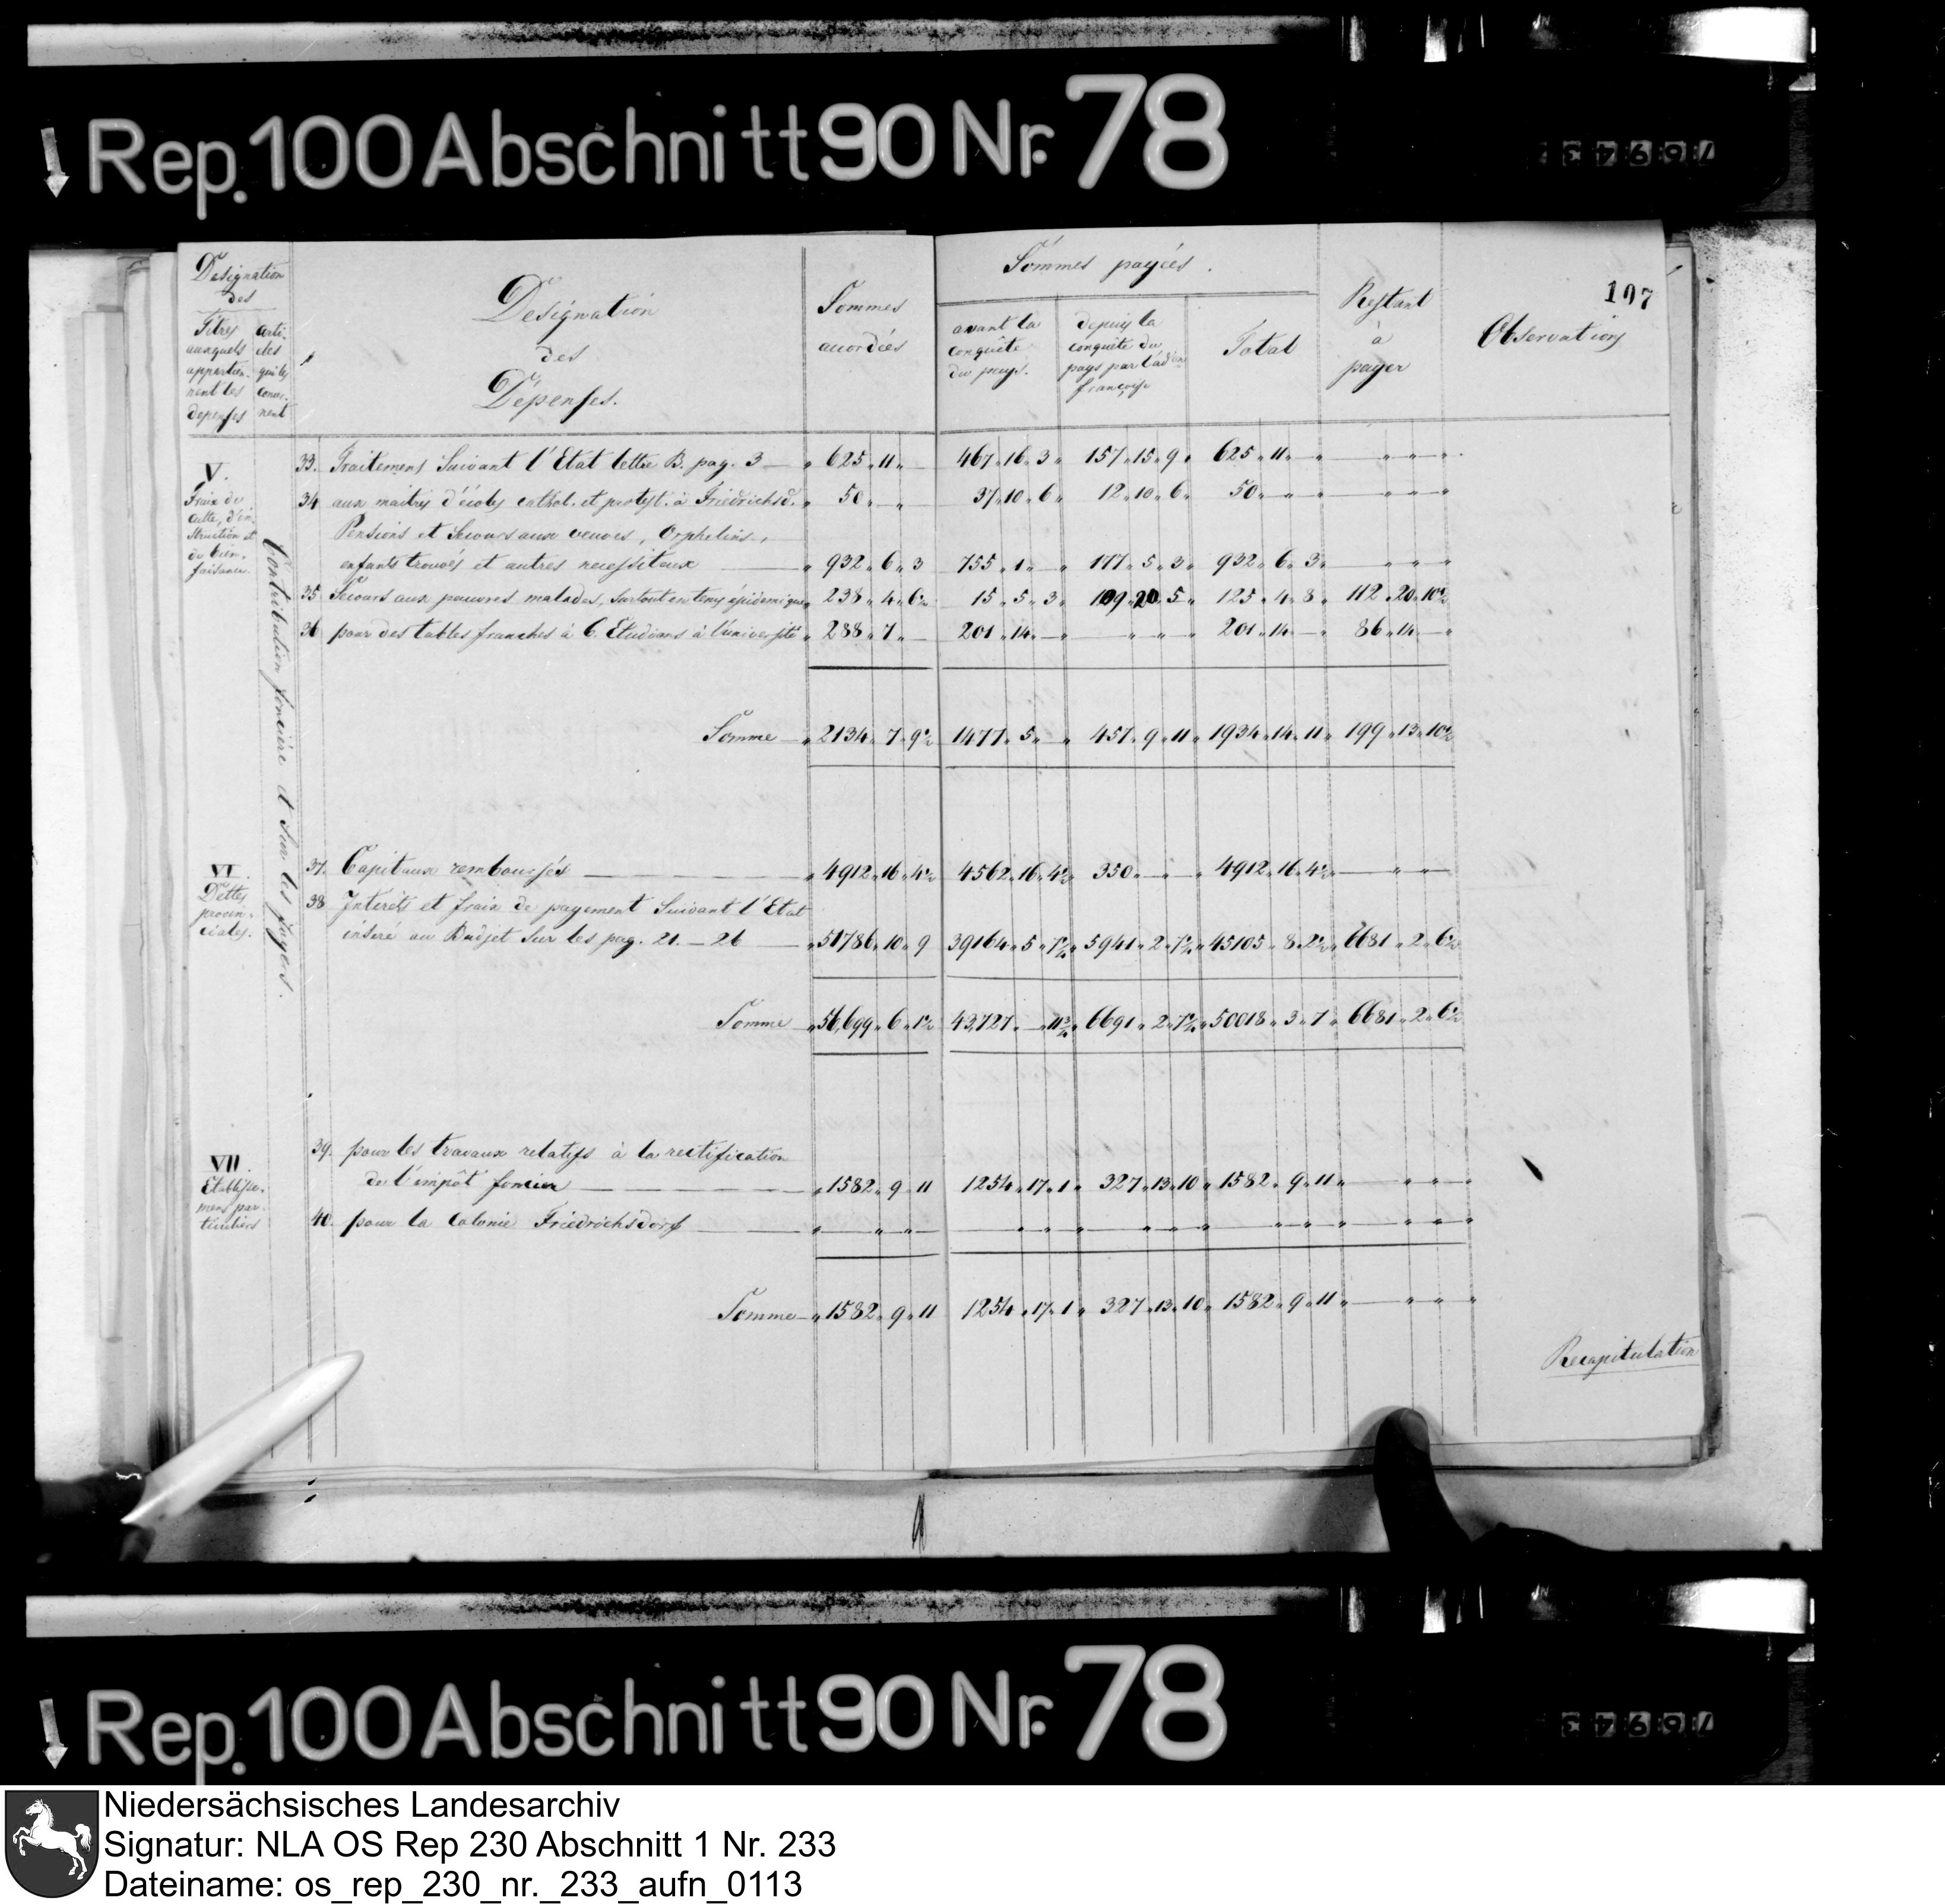 Rep. 100 Abschnitt 90 Nr. 78
76943
107
Designation des
Titres auxquels appartiennent les depenses
Articles qui les concernent
Designation
des
Dépenses.
Sommes
accordées
Sommes payées.
avant la conquête du pays.
depuis la conquête du pays par l'ad françoise
Total
Restant
à
payer
Observations
V.
Frais de culte, d'instruction et de bienfaisance.
Contribution foncière et sur les pages.
33. Traitemens Suivant l'Etat lettre B. pag. 3 — " 625 " 11 " — 467 " 16 " 3 " 157 " 15 " 9 " 625 " 11 " — " " " "
34 aux maitres d'écoles cathol. et protest. à Friedrichsd. " 50 " — " 37 " 10 " 6 " 12 " 10 " 6 " 50 " " " " " "
Pensions et Secours aux veuves, Orphelins,
enfants trouvés et autres necessiteux — " 932 " 6 " 3 755 " 1 " — " 177 " 5 " 3 " 932 " 6 " 3 " " " "
35 Secours aux pauvres malades, surtout en tems épidemique " 238 " 4 " 6½ 15 " 5 " 3 " 109 " 20 " 5 " 125 " 4 " 8 " 112 " 20 " 10½
36 pour des tables franches à 6 Etudians à l'université " 288 " 7 " — 201 " 14 " — " " " " 201 " 14 " — " 86 " 14 " — "
Somme — " 2134 " 7 " 9½ 1477 " 5 " — " 457 " 9 " 11 " 1934 " 14 " 11 " 199 " 13 " 10½
VI.
Dettes provinciales.
37. Capitaux remboursés — " 4912 " 16 " 4½ 4562 " 16 " 4½ 350 " — " " 4912 " 16 " 4½ — " " —
38 Interêts et frais de payement Suivant l'Etat
inséré au Budjet Sur les pag. 21. — 26 — " 51786 " 10 " 9 39164 " 5 " 7 " 5941 " 2 " 7 " 45105 " 8 " 2½ " 6681 " 2 " 6½
Somme — " 56,699 " 6 " 1½ 43,727 " — " 11 6691 " 2 " 7 " 50018 " 3 " 7 " 6681 " 2 " 6½
VII.
Etablissemens particuliers
39. pour les travaux relatifs à la rectification
de l'impôt foncier — " 1582 " 9 " 11 1254 " 17 " 1 " 327 " 13 " 10 " 1582 " 9 " 11 " — " " "
40. pour la Colonie Friedrichsdorf — " — " " — " " " " " " " " " " " "
Somme — " 1582 " 9 " 11 1254 " 17 " 1 " 327 " 13 " 10 " 1582 " 9 " 11 " — " " "
Recapitulation
Rep. 100 Abschnitt 90 Nr. 78
76943
Niedersächsisches Landesarchiv
Signatur: NLA OS Rep 230 Abschnitt 1 Nr. 233
Dateiname: os_rep_230_nr._233_aufn_0113